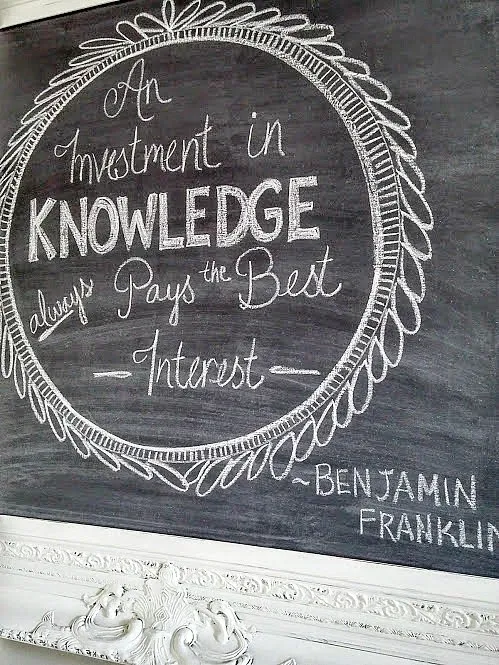 An
Investment in
KNOWLEDGE
always Pays the Best
- Interest -
~BENJAMIN
FRANKLIN